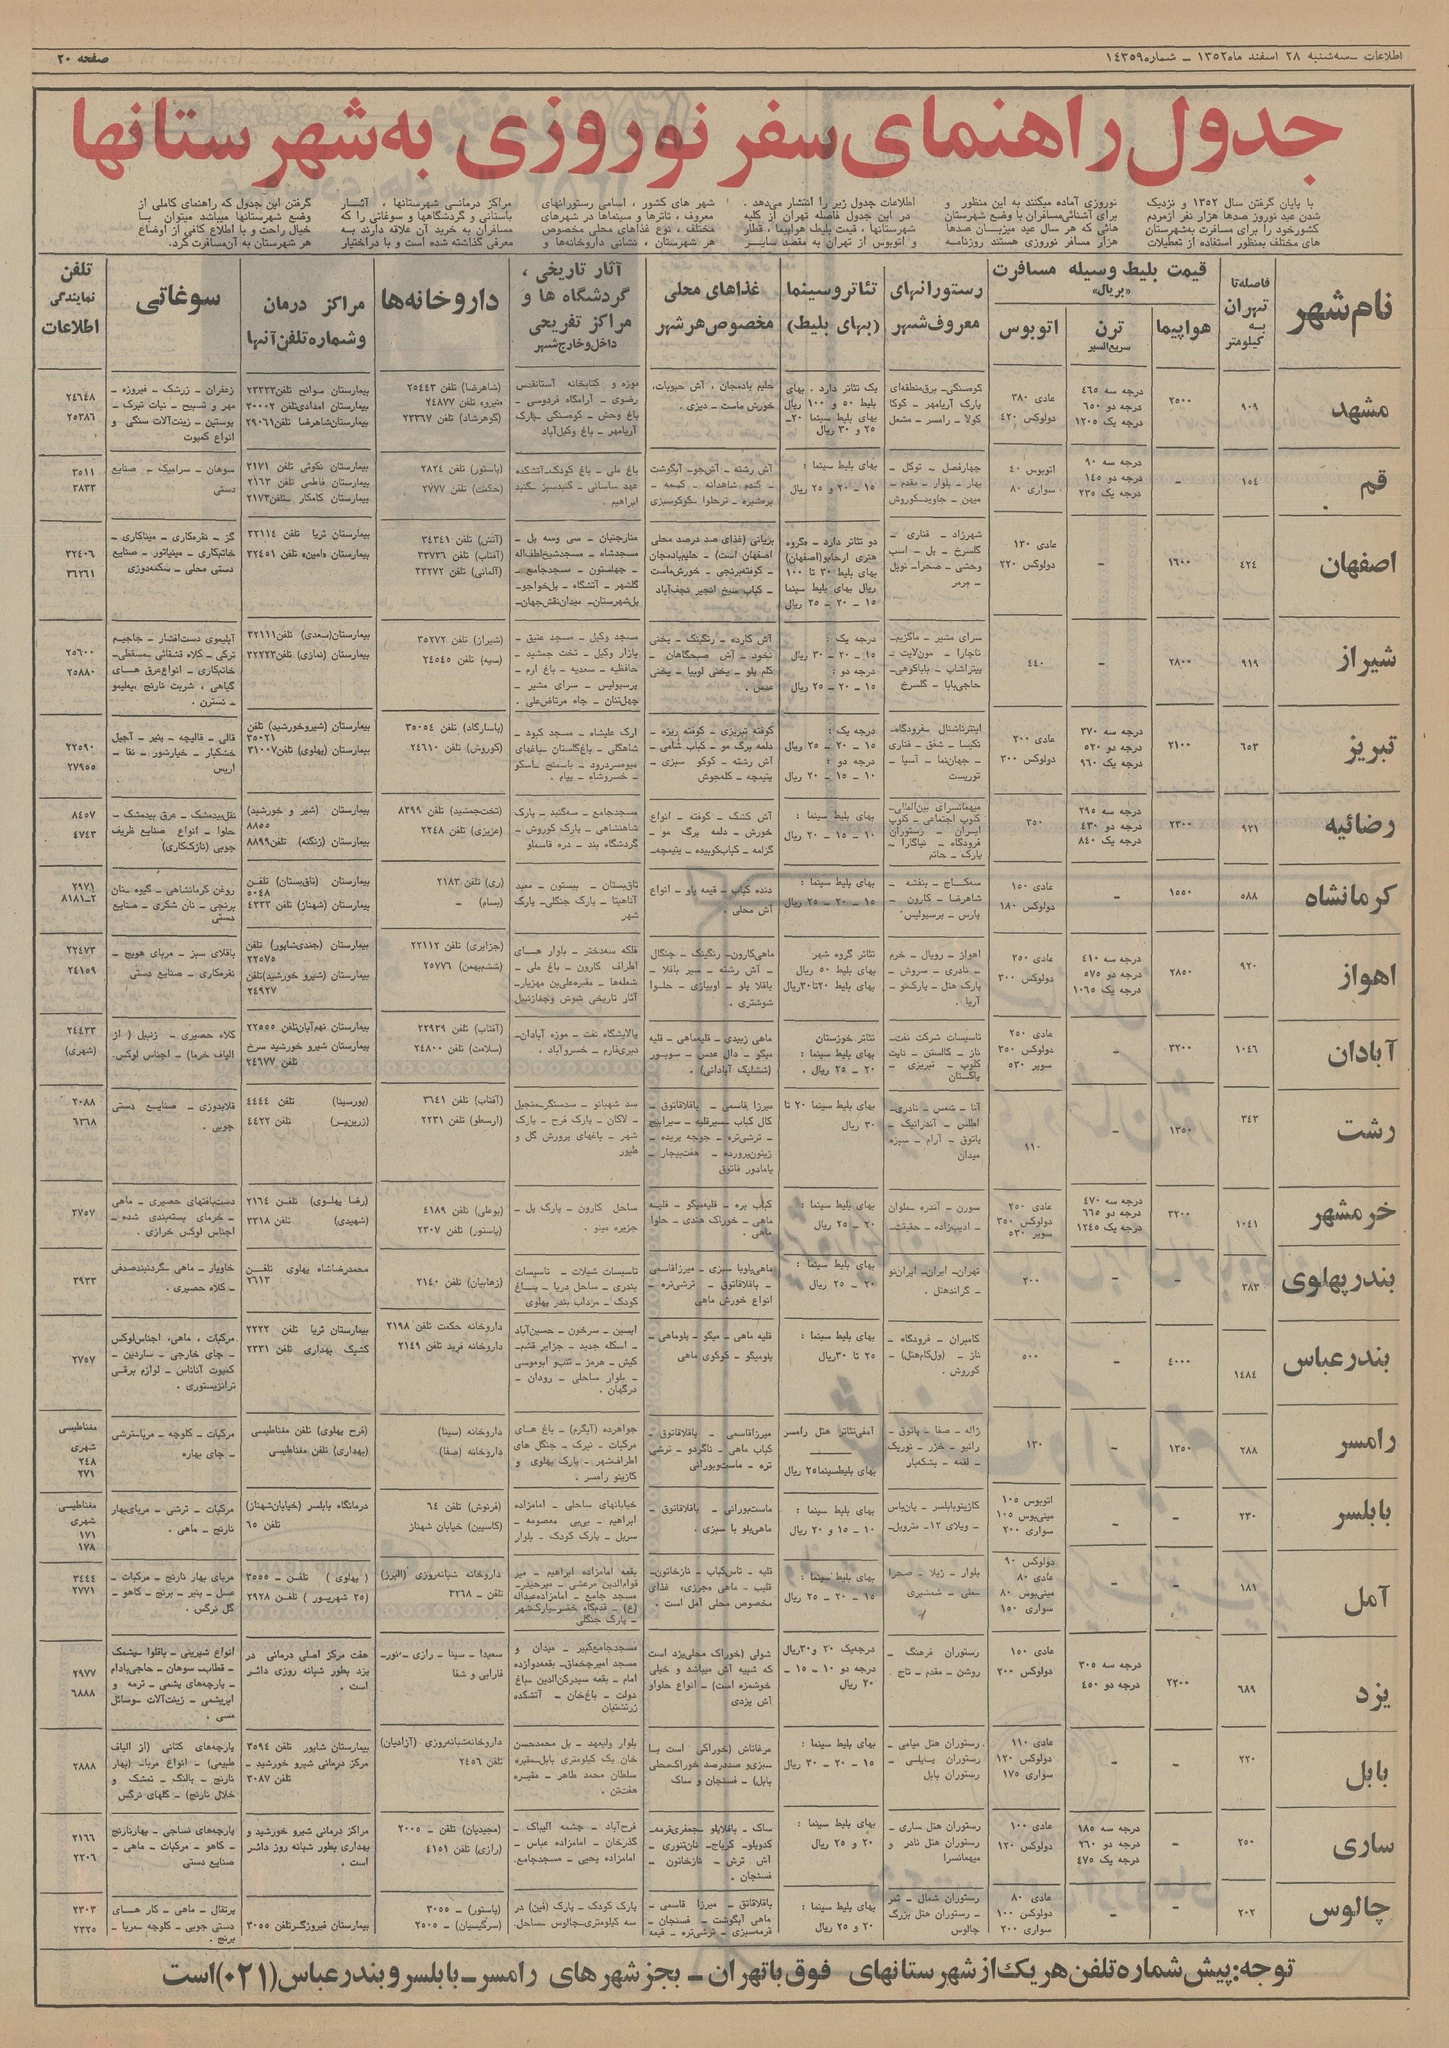 اطلاعات ــ سه‌شنبه ۲۸ اسفند ماه ۱۳۵۲ ــ شماره ۱۴۳۵۹
صفحه ۲۰
جدول راهنمای سفر نوروزی به شهرستانها
با پایان گرفتن سال ۱۳۵۲ و نزدیک
شدن عید نوروز صدها هزار نفر ازمردم
کشورخود را برای مسافرت به‌شهرستان
های مختلف بمنظور استفاده از تعطیلات
نوروزی آماده میکنند به این منظور و
برای آشنائی‌مسافران با وضع شهرستان
هائی که هر سال عید میزبــان صدها
هزار مسافر نوروزی هستند روزنامه
اطلاعات جدول زیر را انتشار می‌دهد .
در این جدول فاصله تهران از کلیه
شهرستانها ، قیمت بلیط هواپیما ، قطار
و اتوبوس از تهران به مقصد سایــر
شهر های کشور ، اسامی رستورانهای
معروف ، تاترها و سینماها در شهرهای
مختلف ، نوع غذاهای محلی مخصوص
هر شهرستان ، نشانی داروخانه‌ها و
مراکز درمانــی شهرستانها ، آثــار
باستانی و گردشگاهها و سوغاتی را که
مسافران به خرید آن علاقه دارند بــه
معرفی گذاشته شده است و با دراختیار
گرفتن این جدول که راهنمای کاملی از
وضع شهرستانها میباشد میتوان بــا
خیال راحت و با اطلاع کافی از اوضاع
هر شهرستان به آن مسافرت کرد.
نام شهر
فاصله تا
تهران
به
کیلومتر
قیمت بلیط وسیله مسافرت
«بریال»
هواپیما
ترن
سریع‌السیر
اتوبوس
رستورانهای
معروف شهر
تئاتر و سینما
(بهای بلیط)
غذاهای محلی
مخصوص هر شهر
آثار تاریخی ،
گردشگاه ها و
مراکز تفریحی
داخل و خارج شهر
داروخانه‌ها
مراکز درمان
و شماره تلفن آنها
سوغاتی
تلفن
نمایندگی
اطلاعات
مشهد
۹۰۹
۲۵۰۰
درجه سه ۴۶۵
درجه دو ۶۵۰
درجه یک ۱۲۰۵
عادی ۳۸۰
دولوکس ۴۲۰
کوه‌سنگی- برق‌منطقه‌ای
پارک آریامهر - کوکا
کولا - رامسر - مشعل
یک تئاتر دارد . بهای
بلیط ۵۰ و ۱۰۰ ریال
بهای بلیط سینما ۲۰-
۲۵ و ۳۰ ریال
حلیم بادمجان، آش حبوبات،
خورش ماست - دیزی .
موزه و کتابخانه آستانقدس
رضوی - آرامگاه فردوسی -
باغ وحش - کوهسنگی - پارک
آریامهر - باغ وکیل‌آباد
(شاهرضا) تلفن ۲۵۴۴۳
«نیرو» تلفن ۲۴۸۷۷
(گوهرشاد) تلفن ۲۳۳۶۷
بیمارستان سوانح تلفن۲۳۳۳۳
بیمارستان امدادی‌تلفن ۲۰۰۰۲
بیمارستان‌شاهرضا تلفن۲۹۰۶۱
زعفران - زرشک - فیروزه -
مهر و تسبیح - نبات تبرک -
پوستین - زینت‌آلات سنگی و
انواع کمپوت
۲۴۶۴۸
۲۵۳۸۶
قم
۱۵۴
-
درجه سه ۹۰
درجه دو ۱۴۵
درجه یک ۲۳۵
اتوبوس ۴۰
سواری ۸۰
چهارفصل - توکل -
بهار - بلوار - مقدم -
میهن - جاوید-کوروش
بهای بلیط سینما :
۱۵ - ۲۰ و ۲۵ ریال
آش رشته - آش‌جو- آبگوشت
- گندم شاهدانه - کیمه -
بره‌شیره - ترحلوا -کوکوسبزی
باغ ملی - باغ کودک-آتشکده
عهد ساسانی - گنبدسبز -گنبد
ابراهیم .
(پاستور) تلفن ۲۸۲۴
(حکمت) تلفن ۲۷۷۷
بیمارستان نکوئی تلفن ۲۱۷۱
بیمارستان فاطمی تلفن ۲۱۶۳
بیمارستان کامکار -تلفن۲۱۷۳
سوهان - سرامیک - صنایع
دستی
۳۵۱۱
۳۸۳۳
اصفهان
۴۲۴
۱۶۰۰
-
عادی ۱۳۰
دولوکس ۲۲۰
شهرزاد - قناری -
گلسرخ - پل - اسب
وحشی - صحرا- نوبل
- مرمر
دو تئاتر دارد - «گروه
هنری ارحام‌و(اصفهان)
بهای بلیط ۳۰ تا ۱۰۰
ریال بهای بلیط سینما
۱۵ - ۲۰ - ۲۵ ریال
بریانی (غذای صد درصد محلی
اصفهان است) - حلیم‌بادمجان
- کوفته‌برنجی - خورش‌ماست
- کباب سیخ انجیر نجف‌آباد
منارجنبان - سی وسه پل -
مسجدشاه - مسجدشیخ‌لطف‌اله
- چهلستون - مسجدجامع -
گلشهر - آتشگاه - پل‌خواجو-
پل‌شهرستان- میدان‌نقش‌جهان-
(آتش) تلفن ۳۴۳۴۱
(آفتاب) تلفن ۳۳۷۳۶
(آلمانی) تلفن ۳۳۲۷۲
بیمارستان ثریا تلفن ۳۲۱۱۴
بیمارستان «امین» تلفن ۳۲۴۵۱
گز - نقره‌کاری - میناکاری -
خاتم‌کاری - مینیاتور - صنایع
دستی محلی - سکمه‌دوزی
۳۲۴۰۶
۳۶۲۶۱
شیراز
۹۱۹
۲۸۰۰
-
۴۴۰
سرای مشیر - ماگزیم-
تاچارا - مون‌لایت -
پیتراشاپ - باباکوهی-
حاجی‌بابا - گلسرخ
درجه یک :
۱۵ - ۲۰ - ۳۰ ریال
درجه دو :
۱۵ - ۲۰ - ۲۵ ریال
آش کارده - رنگینک - یخنی
نخود - آش صبحگاهان -
کلم پلو - یخنی لوبیا - یخنی
عدس .
مسجد وکیل - مسجد عتیق -
بازار وکیل - تخت جمشید -
حافظیه - سعدیه - باغ ارم -
پرسپولیس - سرای مشیر -
چهل‌تنان - چاه مرتاض‌علی .
(شیراز) تلفن ۳۵۲۷۲
(سپه) تلفن ۲۴۵۴۵
بیمارستان(سعدی) تلفن ۳۲۱۱۱
بیمارستان (نمازی) تلفن۳۲۲۲۳
آبلیموی دست‌افشار - جاجیم
ترکی - کلاه قشقائی -مسقطی-
خاتم‌کاری - انواع‌عرق هــای
گیاهی ، شربت نارنج ، به‌لیمو
- نسترن .
۲۵۶۰۰
۲۵۸۸۰
تبریز
۶۵۳
۲۱۰۰
درجه سه ۳۷۰
درجه دو ۵۲۰
درجه یک ۹۶۰
عادی ۲۰۰
دولوکس ۳۰۰
اینترناشنال -فرودگاه-
تکیسا - شفق - قناری
- جهان‌نما - آسیا -
توریست
درجه یک :
۱۵ - ۲۰ - ۲۵ ریال
درجه دو :
۱۰ - ۱۵ - ۲۰ ریال
کوفته تبریزی - کوفته ریزه -
دلمه برگ مو - کباب شامی -
آش رشته - کوکو سبزی -
یتیمچه - کله‌جوش
ارک علیشاه - مسجد کبود -
شاهگلی - باغ‌گلستان -باغهای
میوه‌سردرود - باسمنج -اسکو
- خسروشاه - پیام .
(پاسارگاد) تلفن ۳۵۰۵۴
(کوروش) تلفن ۲۴۶۱۰
بیمارستان (شیروخورشید) تلفن
۲۵۰۲۱
بیمارستان (پهلوی) تلفن۳۱۰۰۷
قالی - قالیچه - پنیر - آجیل
خشکبار - خیارشور - نقا -
اریس
۲۲۵۹۰
۲۷۹۵۵
رضائیه
۹۲۱
۲۳۰۰
درجه سه ۲۹۵
درجه دو ۴۳۰
درجه یک ۸۴۰
۳۵۰
میهمانسرای بین‌المللی-
کلوپ اجتماعی - کلوپ
ایران - رستوران
فرودگاه - نیاگارا -
پارک - خاتم
بهای بلیط سینما :
۱۰ - ۱۵ - ۲۰ ریال
آش کشک - کوفته - انواع
خورش - دلمه برگ مو -
گزلمه - کباب‌کوبیده - یتیمچه-
مسجدجامع - سه‌گنبد - پارک
شاهنشاهی - پارک کوروش -
گردشگاه بند - دره قاسملو
(تخت‌جمشید) تلفن ۸۳۹۹
(عزیزی) تلفن ۲۲۴۸
بیمارستان (شیر و خورشید)
۸۸۵۵
بیمارستان (زنگنه) تلفن۸۸۹۹
نقل‌بیدمشک - عرق بیدمشک-
حلوا - انواع صنایع ظریف
چوبی (نازک‌کاری)
۸۴۵۷
۴۷۴۳
کرمانشاه
۵۸۸
۱۵۵۰
-
عادی ۱۵۰
دولوکس ۱۸۰
سه‌کــاج - بنفشه -
شاهرضا - کارون -
پارس - پرسپولیس.
بهای بلیط سینما :
۱۵ - ۲۰ - ۲۵ ریال
دنده کباب - قیمه پلو - انواع
آش محلی .
تاق‌بستان - بیستون - معبد
آناهیتا - پارک جنگلی- پارک
شهر
(ری) تلفن ۲۱۸۳
(بسام) -
بیمارستان (تاق‌بستان) تلفــن
۵۰۴۸
بیمارستان (شهناز) تلفن ۴۲۳۳
روغن کرمانشاهی - گیوه -نان
برنجی - نان شکری - صنایع
دستی
۲۹۷۱
۸۱۸۱-۲
اهواز
۹۲۰
۲۸۵۰
درجه سه ۴۱۰
درجه دو ۵۷۵
درجه یک ۱۰۶۵
عادی ۲۵۰
دولوکس ۳۰۰
اهواز - رویال - خرم
- نادری - سروش -
پارک هتل - پارک‌نو -
آریا .
تئاتر گروه شهر
بهای بلیط ۵۰ ریال
بهای بلیط ۲۰تا۳۰ریال
ماهی‌کارون- رنگینک - چنگال
- آش رشته - سیر باقلا -
باقلا پلو - لوبیازی - حلــوا
شوشتری .
فلکه سه‌دختر - بلوار هــای
اطراف کارون - باغ ملی -
شعله‌ها - مقبره‌علی‌بن مهزیار-
آثار تاریخی شوش وچغازنبیل
(جزایری) تلفن ۲۲۱۱۲
(ششم‌بهمن) ۲۵۷۷۶
بیمارستان (جندی‌شاپور) تلفن
۲۲۵۷۵
بیمارستان (شیرو خورشید)تلفن
۲۴۹۲۷
باقلای سبز - مربای هویج -
نقره‌کاری - صنایع دستی
۲۲۴۷۳
۲۴۱۵۹
آبادان
۱۰۴۶
۳۲۰۰
-
عادی ۲۵۰
دولوکس ۳۵۰
سوپر ۵۳۰
تاسیسات شرکت نفت-
ناز - کالستن - نایت
کلوپ - تبریزی -
پاکستان
تئاتر خوزستان
بهای بلیط سینما :
۲۰ - ۲۵ ریال .
ماهی زبیدی - قلیه‌ماهی - قلیه
میگو - دال عدس - سوبــور
(ششلیک آبادانی) .
پالایشگاه نفت - موزه آبادان-
دیری‌فارم - خسروآباد .
(آفتاب) تلفن ۲۲۹۳۹
(سلامت) تلفن ۲۴۸۰۰
بیمارستان نهم‌آبان‌تلفن ۲۲۵۵۵
بیمارستان شیرو خورشید سرخ
تلفن ۲۴۶۷۷
کلاه حصیری - زنبیل ( از
الیاف خرما) - اجناس لوکس.
۲۴۴۳۳
(شهری)
رشت
۳۴۳
۱۳۵۰
-
۱۱۰
آتا - شمس - نادری-
اطلس - آندرانیک -
پاتوق - آرام - سبزه
میدان
بهای بلیط سینما ۲۰ تا
۳۰ ریال
میرزا قاسمی - باقلاقاتوق -
کال کباب -سیرقلیه - سیرابیج
- ترشی‌تره - جوجه بریده -
زیتون‌پرورده - هفت‌بیجار -
بامادور قاتوق
سد شهبانو - سدسنگر-منجیل
- لاکان - پارک فرح - پارک
شهر - باغهای پرورش گل و
طیور
(آفتاب) تلفن ۳۶۴۱
(ارسطو) تلفن ۲۲۳۱
(پورسینا) تلفن ۴۴۴۴
(زرین‌پر) تلفن ۴۴۲۲
قلابدوزی - صنایــع دستی
چوبی .
۲۰۸۸
۶۳۶۸
خرمشهر
۱۰۴۱
۳۲۰۰
درجه سه ۴۷۰
درجه دو ۶۶۵
درجه یک ۱۲۴۵
عادی ۲۵۰
دولوکس ۳۵۰
سوپر ۵۳۰
سورن - آندره -ملوان
- ادیب‌زاده - حقیقت-
بهای بلیط سینما :
۲۰ - ۲۵ ریال
کباب بره - قلیه‌میگو - قلیــه
ماهی - خوراک هندی - حلوا
ماهی .
ساحل کارون - پارک پل -
جزیره مینو .
(بوعلی) تلفن ۴۱۸۹
(پاستور) تلفن ۲۳۰۷
(رضا پهلوی) تلفــن ۲۱۶۴
(شهیدی) تلفن ۳۳۱۸
دست‌بافتهای حصیری - ماهی
- خرمای بسته‌بندی شده -
اجناس لوکس خرازی .
۳۷۵۷
بندر پهلوی
۳۸۳
-
-
۲۰۰
تهران- ایران- ایران‌نو
- گراندهتل .
بهای بلیط سینما :
۲۰ - ۲۵ ریال
ماهی‌پلوبا سبزی - میرزاقاسمی
- باقلاقاتوق - ترشی‌تره -
انواع خورش ماهی
تاسیسات شیلات - تاسیسات
بندری - ساحل دریا - بــاغ
کودک - مرداب بندر پهلوی
(زهابیان) تلفن ۲۱۴۰
محمدرضاشاه پهلوی تلفــن
۲۶۱۳
خاویار - ماهی -گردنبندصدفی
- کلاه حصیری .
۳۹۳۳
بندرعباس
۱۴۸۴
۴۰۰۰
-
۵۰۰
کامبران - فرودگاه -
ناز - (ول‌کام‌هتل) -
کوروش .
بهای بلیط سینما :
۲۵ تا ۳۰ریال
قلیه ماهی - میگو - پلوماهی -
پلومیگو - کوکوی ماهی
ایسین - سرخون - حسین‌آباد
- اسکله جدید - جزایر قشم-
کیش - هرمز - تنب‌و ابوموسی
- بلوار ساحلی - رودان -
درگهان .
داروخانه حکمت تلفن ۲۱۹۸
داروخانه فرید تلفن ۲۱۴۹
بیمارستان ثریا تلفن ۲۲۲۲
کشیک بهداری تلفن ۲۳۳۱
مرکبات ، ماهی، اجناس‌لوکس
- چای خارجی - ساردین -
کمپوت آناناس - لوازم برقی
ترانزیستوری .
۲۷۵۷
رامسر
۲۸۸
۱۳۵۰
-
۱۳۰
ژاله - صفا - پاتوق -
رانیو - خزر - توریک
- لقمه - بشکه‌بار
آمفی‌تئاتر هتل رامسر
بهای بلیط‌سینما۲۵ ریال
میرزاقاسمی - باقلاقاتوق -
کباب ماهی - ناگردو - ترشی
تره - ماست‌وبورانی
جواهرده (آبگرم) - باغ های
مرکبات - نیرک - جنگل های
اطراف‌شهر - پارک پهلوی و
کازینو رامسر .
داروخانه (سینا)
داروخانه (صفا)
(فرح پهلوی) تلفن مغناطیسی
(بهداری) تلفن مغناطیسی
مرکبات - کلوچه - مرباـ‌ترشی
- چای بهاره
مغناطیسی
شهری
۲۴۸
۲۷۱
بابلسر
۲۳۰
-
-
اتوبوس ۱۰۵
مینی‌بوس ۱۰۵
سواری ۲۰۰
کازینوبابلسر - پان‌پاس
- ویلای ۱۲- متروپل-
بهای بلیط سینما :
۱۰ - ۱۵ و ۲۰ ریال
ماست‌بورانی - باقلاقاتوق -
ماهی‌پلو با سبزی .
خیابانهای ساحلی - امامزاده
ابراهیم - بی‌بی معصومه -
سرپل - پارک کودک - بلوار
(فرنوش) تلفن ۶۴
(کاسپین) خیابان شهناز
درمانگاه بابلسر (خیابان‌شهناز)
تلفن ۶۵
مرکبات - ترشی - مربای‌بهار
نارنج - ماهی .
مغناطیسی
شهری
۱۷۱
۱۷۸
آمل
۱۸۱
-
-
دولوکس ۹۰
عادی ۸۰
مینی‌بوس ۸۰
سواری ۱۵۰
بلوار - ژیلا - صحرا
-ملی - شمشیری
بهای بلیط سینما :
۱۵ - ۲۰ - ۲۵ ریال
قلیه - تاس‌کباب - نازخاتون-
قلیب - ماهی «جرزی» غذای
مخصوص محلی آمل است .
بقعه امامزاده ابراهیم - میر
قوام‌الدین مرعشی - میرحیدر-
مسجد جامع - امامزاده‌عبداله
(ع) - قدمگاه خضر-پارک‌شهر
- پارک جنگلی
داروخانه شبانه‌روزی (البرز)
تلفن - ۳۲۶۸
(پهلوی ) تلفــن - ۳۵۵۵
(۲۵ شهریــور ) تلفن - ۲۹۲۸
مربای بهار نارنج - مرکبات -
عسل - پنیر - برنج - کاهو -
گل نرگس .
۳۴۴۴
۲۷۷۱
یزد
۶۸۹
۲۲۰۰
درجه سه ۳۰۵
درجه دو ۴۵۰
عادی ۱۵۰
دولوکس ۲۰۰
رستوران فرهنگ -
روشن - مقدم - تاج .
درجه‌یک ۲۰ و۳۰ریال
درجه دو ۱۰ - ۱۵ -
۲۰ ریال
شولی (خوراک محلی‌یزد است
که شبیه آش میباشد و خیلی
خوشمزه است) - انواع حلواو
آش یزدی
مسجدجامع‌کبیر - میدان و
مسجد امیرچخماق- بقعه‌دوازده
امام - بقعه سیدرکن‌الدین -باغ
دولت - باغ‌خان - آتشکده
زرتشتیان
سعیدا - سینا - رازی -نور-
فارابی و شفا
هفت مرکز اصلی درمانی در
یزد بطور شبانه روزی دائــر
است .
انواع شیرینی - باقلوا -پشمک
- قطاب- سوهان - حاجی‌بادام
- پارچه‌های پشمی - ترمه و
ابریشمی - زینت‌آلات -وسائل
مسی .
۲۹۷۷
۶۸۸۸
بابل
۲۲۰
-
-
عادی ۱۱۰
دولوکس ۱۲۰
سواری ۱۷۵
رستوران هتل میامی -
رستوران بابیلی -
رستوران بابل
بهای بلیط سینما :
۱۵ - ۲۰ - ۳۰ ریال
مرغاناش (خوراکی است بــا
سبزی‌و صددرصد خوراک‌محلی
بابل) - فسنجان و ساک
بلوار ولیعهد - پل محمدحسن
خان یک کیلومتری بابل-مقبره
سلطان محمد طاهر - مقبــره
هفت‌تن .
داروخانه‌شبانه‌روزی (آزادیان)
تلفن ۲۴۵۶
بیمارستان شاپور تلفن ۳۵۹۴
مرکز درمانی شیرو خورشید -
تلفن ۳۰۸۷
پارچه‌های کتانی (از الیاف
طبیعی) - انواع مربــا- (بهار
نارنج - بالنگ - تمشک و
خلال نارنج) - گلهای نرگس
۲۸۸۸
ساری
۲۵۰
-
درجه سه ۱۸۵
درجه دو ۲۶۰
درجه یک ۴۷۵
عادی ۱۰۰
دولوکس ۱۲۰
رستوران هتل ساری -
رستوران هتل نادر و
میهمانسرا
بهای بلیط سینما :
۲۰ و ۲۵ ریال
ساک - باقلاپلو -جعفری‌قرمه-
کدوپلو- کرباج- نان‌تنوری -
آش ترش - نازخاتون -
فسنجان .
فرح‌آباد - چشمه آلیباک -
گذرخان - امامزاده عباس -
امامزاده یحیی - مسجدجامع.
(مجیدیان) تلفن - ۲۰۰۵
(رازی) تلفن ۴۱۵۱
مراکز درمانی شیرو خورشید و
بهداری بطور شبانه روز دائــر
است .
پارچه‌های نساجی - بهارنارنج
- کاهو - مرکبات - ماهی -
صنایع دستی
۲۱۶۶
۲۳۰۶
چالوس
۲۰۲
-
-
عادی ۸۰
دولوکس ۱۰۰
سواری ۲۰۰
رستوران شمال - ثمر
- رستوران هتل بزرگ
چالوس
بهای بلیط سینما :
۲۰ و ۲۵ ریال
باقلاقاتق - میرزا قاسمی -
ماهی آبگوشت - فسنجان -
قرمه‌سبزی - ترشی‌تره - قیمه
پارک کودک - پارک (فین) در
سه کیلومتری-چالوس -ساحل.
(پاستور) - ۳۰۵۵
(سرگیسیان) - ۲۰۰۵
بیمارستان فیروزگر-تلفن ۳۰۵۵
پرتقال - ماهی - کار هــای
دستی چوبی - کلوچه -مربا -
برنج .
۲۳۰۳
۲۳۲۵
توجه: پیش شماره تلفن هر یک از شهرستانهای فوق با تهران - بجز شهر های رامسر - بابلسر و بندرعباس (۰۲۱) است